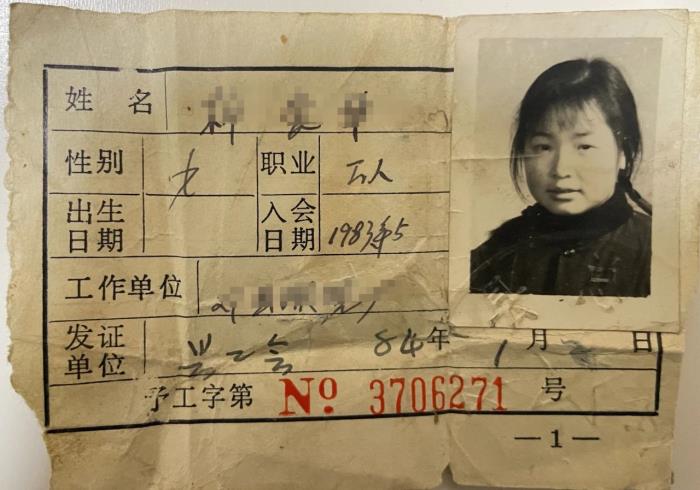 姓名
性别 女 职业 工人
出生日期 入会日期 1983年5
工作单位
发证单位 总工会 84年1月 日
予工字第 No 3706271 号
—1—